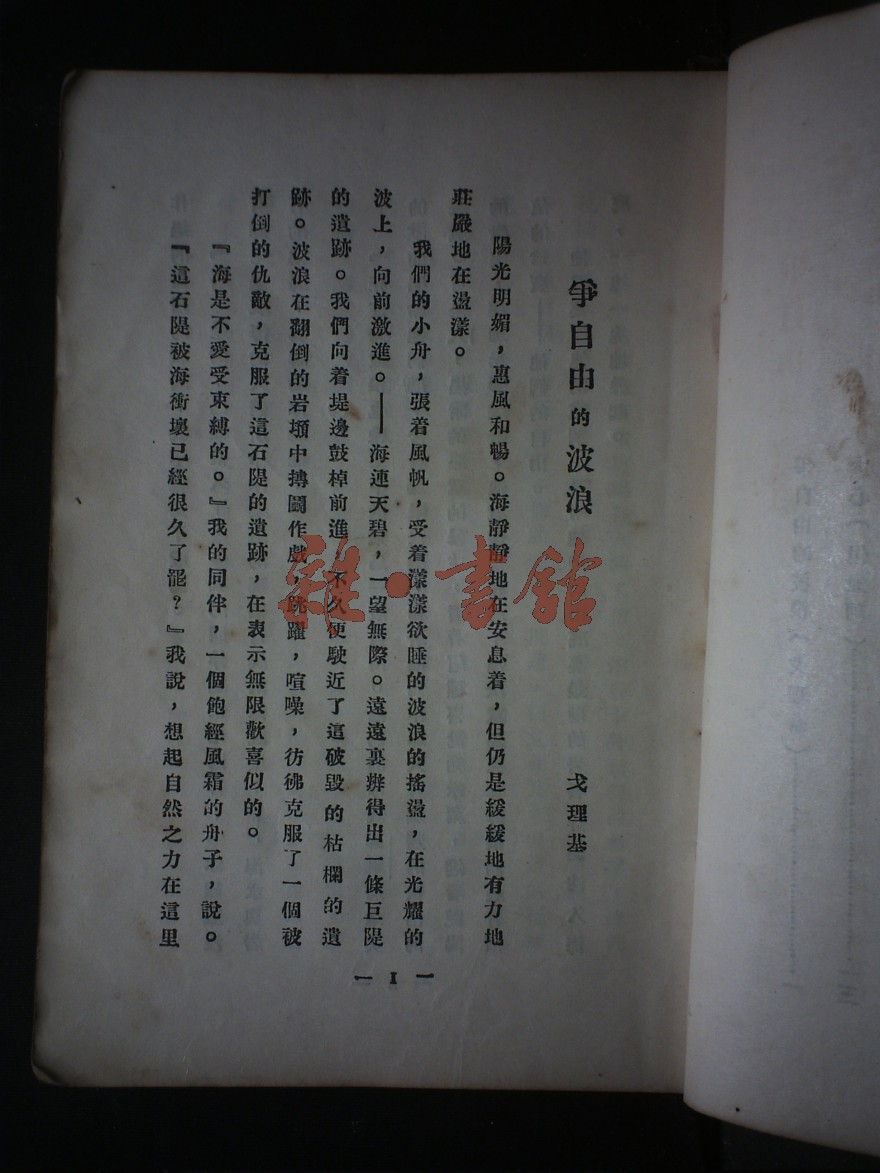 爭自由的波浪
戈理基
陽光明媚，惠風和暢。海靜靜地在安息着，但仍是緩緩地有力地
莊嚴地在盪漾。
我們的小舟，張着風帆，受着漾漾欲睡的波浪的搖盪，在光耀的
波上，向前激進。——海連天碧，一望無際。遠遠裏辨得出一條巨隄
的遺跡。我們向着堤邊鼓棹前進，不久便駛近了這破毀的枯欄的遺
跡。波浪在翻倒的岩頭中搏鬬作戲，跳躍，喧噪，彷彿克服了一個被
打倒的仇敵，克服了這石隄的遺跡，在表示無限歡喜似的。
『海是不愛受束縛的。』我的同伴，一個飽經風霜的舟子，說。
『這石隄被海衝壞已經很久了罷？』我說，想起自然之力在這里
— 1 —
雜·書館